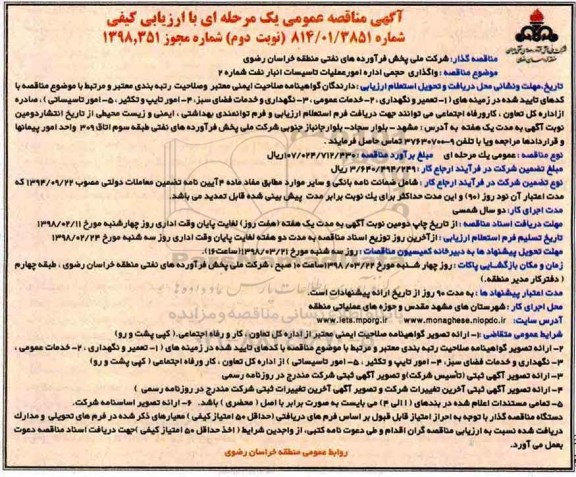 آگهی مناقصه عمومی یک مرحله ای با ارزیابی کیفی
شماره ۸۱۴/۰۱/۳۸۵۱ (نوبت دوم) شماره مجوز ۱۳۹۸,۳۵۱
مناقصه گذار: شرکت ملی پخش فرآورده های نفتی منطقه خراسان رضوی
موضوع مناقصه : واگذاری حجمی اداره امورعملیات تاسیسات انبار نفت شماره ۲
تاریخ،مهلت ونشانی محل دریافت و تحویل استعلام ارزیابی : دارندگان گواهینامه صلاحیت ایمنی معتبر وصلاحیت رتبه بندی معتبر و مرتبط با موضوع مناقصه با
کدهای تایید شده در زمینه های (۱- تعمیر و نگهداری ،۲- خدمات عمومی ،۳- نگهداری و خدمات فضای سبز،۴- امور تایپ و تکثیر ،۵- امور تاسیساتی )، صادره
ازاداره کل تعاون ، کارورفاه اجتماعی می توانند جهت دریافت فرم استعلام ارزیابی و فرم توانمندی بهداشتی ، ایمنی و زیست محیطی از تاریخ انتشاردومین
نوبت آگهی به مدت یک هفته به آدرس : مشهد- بلوار سجاد- بلوارجانباز جنوبی شرکت ملی پخش فرآورده های نفتی طبقه سوم اتاق ۳۰۹ واحد امور پیمانها
و قراردادها مراجعه ویا با تلفن ۹-۳۷۶۳۰۷۰۰ تماس حاصل فرمایند .
نوع مناقصه : عمومی یك مرحله ای مبلغ برآورد مناقصه : ۱۰۷/۰۲۴/۷۱۲/۴۳۰ریال
مبلغ تضمین شرکت در فرآیند ارجاع کار : ۳/۶۴۰/۴۹۴/۲۴۹ ریال
نوع تضمین شرکت در فرآیند ارجاع کار : شامل ضمانت نامه بانکی و سایر موارد مطابق مفاد ماده ۴آیین نامه تضمین معاملات دولتی مصوب ۱۳۹۴/۰۹/۲۲ که
مدت اعتبار آن نود روز (۹۰) و این مدت حداکثر برای یك نوبت برابر مدت پیش بینی شده قابل تمدید می باشد.
مدت اجرای کار: دو سال شمسی
مهلت دریافت اسناد مناقصه : از تاریخ چاپ دومین نوبت آگهی به مدت یک هفته (هفت روز) لغایت پایان وقت اداری روز چهارشنبه مورخ ۱۳۹۸/۰۲/۱۱
تاریخ تسلیم فرم استعلام ارزیابی : ازآخرین روز توزیع اسناد مناقصه به مدت دو هفته لغایت پایان وقت اداری روز سه شنبه مورخ ۱۳۹۸/۰۲/۲۴
مهلت تحویل پیشنهاد ها به دبیرخانه کمیسیون مناقصات : روز سه شنبه مورخ ۱۳۹۸/۰۳/۲۱ (ساعت۱۶).
زمان و مکان بازگشایی پاکات : روز چهار شنبه مورخ ۱۳۹۸/۰۳/۲۲ ساعت ۱۰ صبح ، شرکت ملی پخش فرآورده های نفتی منطقه خراسان رضوی ، طبقه چهارم
( دفترکار مدیر منطقه.)
مدت اعتبار پیشنهاد ها : به مدت ۹۰ روز از تاریخ ارائه پیشنهادات است.
محل اجرای کار : شهرستان های مشهد مقدس و حوزه های عملیاتی منطقه
آدرس سایت: www.monaghese.niopdc.ir www.iets.mporg.ir
شرایط عمومی متقاضی :۱- ارائه تصویر گواهینامه صلاحیت ایمنی معتبر ازاداره کل تعاون ، کار و رفاه اجتماعی.( کپی پشت و رو)
۲- ارائه تصویر گواهینامه صلاحیت رتبه بندی معتبر و مرتبط با موضوع مناقصه با کدهای تایید شده در زمینه های (۱- تعمیر و نگهداری ، ۲- خدمات عمومی ،
۳- نگهداری و خدمات فضای سبز ، ۴- امور تایپ و تکثیر ، ۵- امور تاسیساتی ) از اداره کل تعاون ، کار ورفاه اجتماعی ( کپی پشت و رو)
۳- ارائه تصویر آگهی ثبتی (تأسیس) شرکت و تصویر آگهی ثبتی شرکت مندرج در روزنامه رسمی
۴- ارائه تصویر آگهی ثبتی آخرین تغییرات شرکت و تصویر آگهی آخرین تغییرات ثبتی شرکت مندرج در روزنامه رسمی )
۵- تمامی مستندات اعلام شده در بندهای (۱ الی ۴) می بایست به صورت برابر با اصل ( محضری ) باشد. ۶- ارائه تصویر اساسنامه شرکت.
دستگاه مناقصه گذار با توجه به احراز امتیاز قابل قبول بر اساس فرم های دریافتی (حداقل ۵۰ امتیاز کیفی ) معیارهای ذکر شده در فرم های تحویلی و مدارک
دریافت شده نسبت به ارزیابی مناقصه گران اقدام و طی دعوت نامه کتبی، از واجدین شرایط ( اخذ حداقل ۵۰ امتیاز کیفی )جهت دریافت اسناد مناقصه دعوت
بعمل می آورد.
روابط عمومی منطقه خراسان رضوی